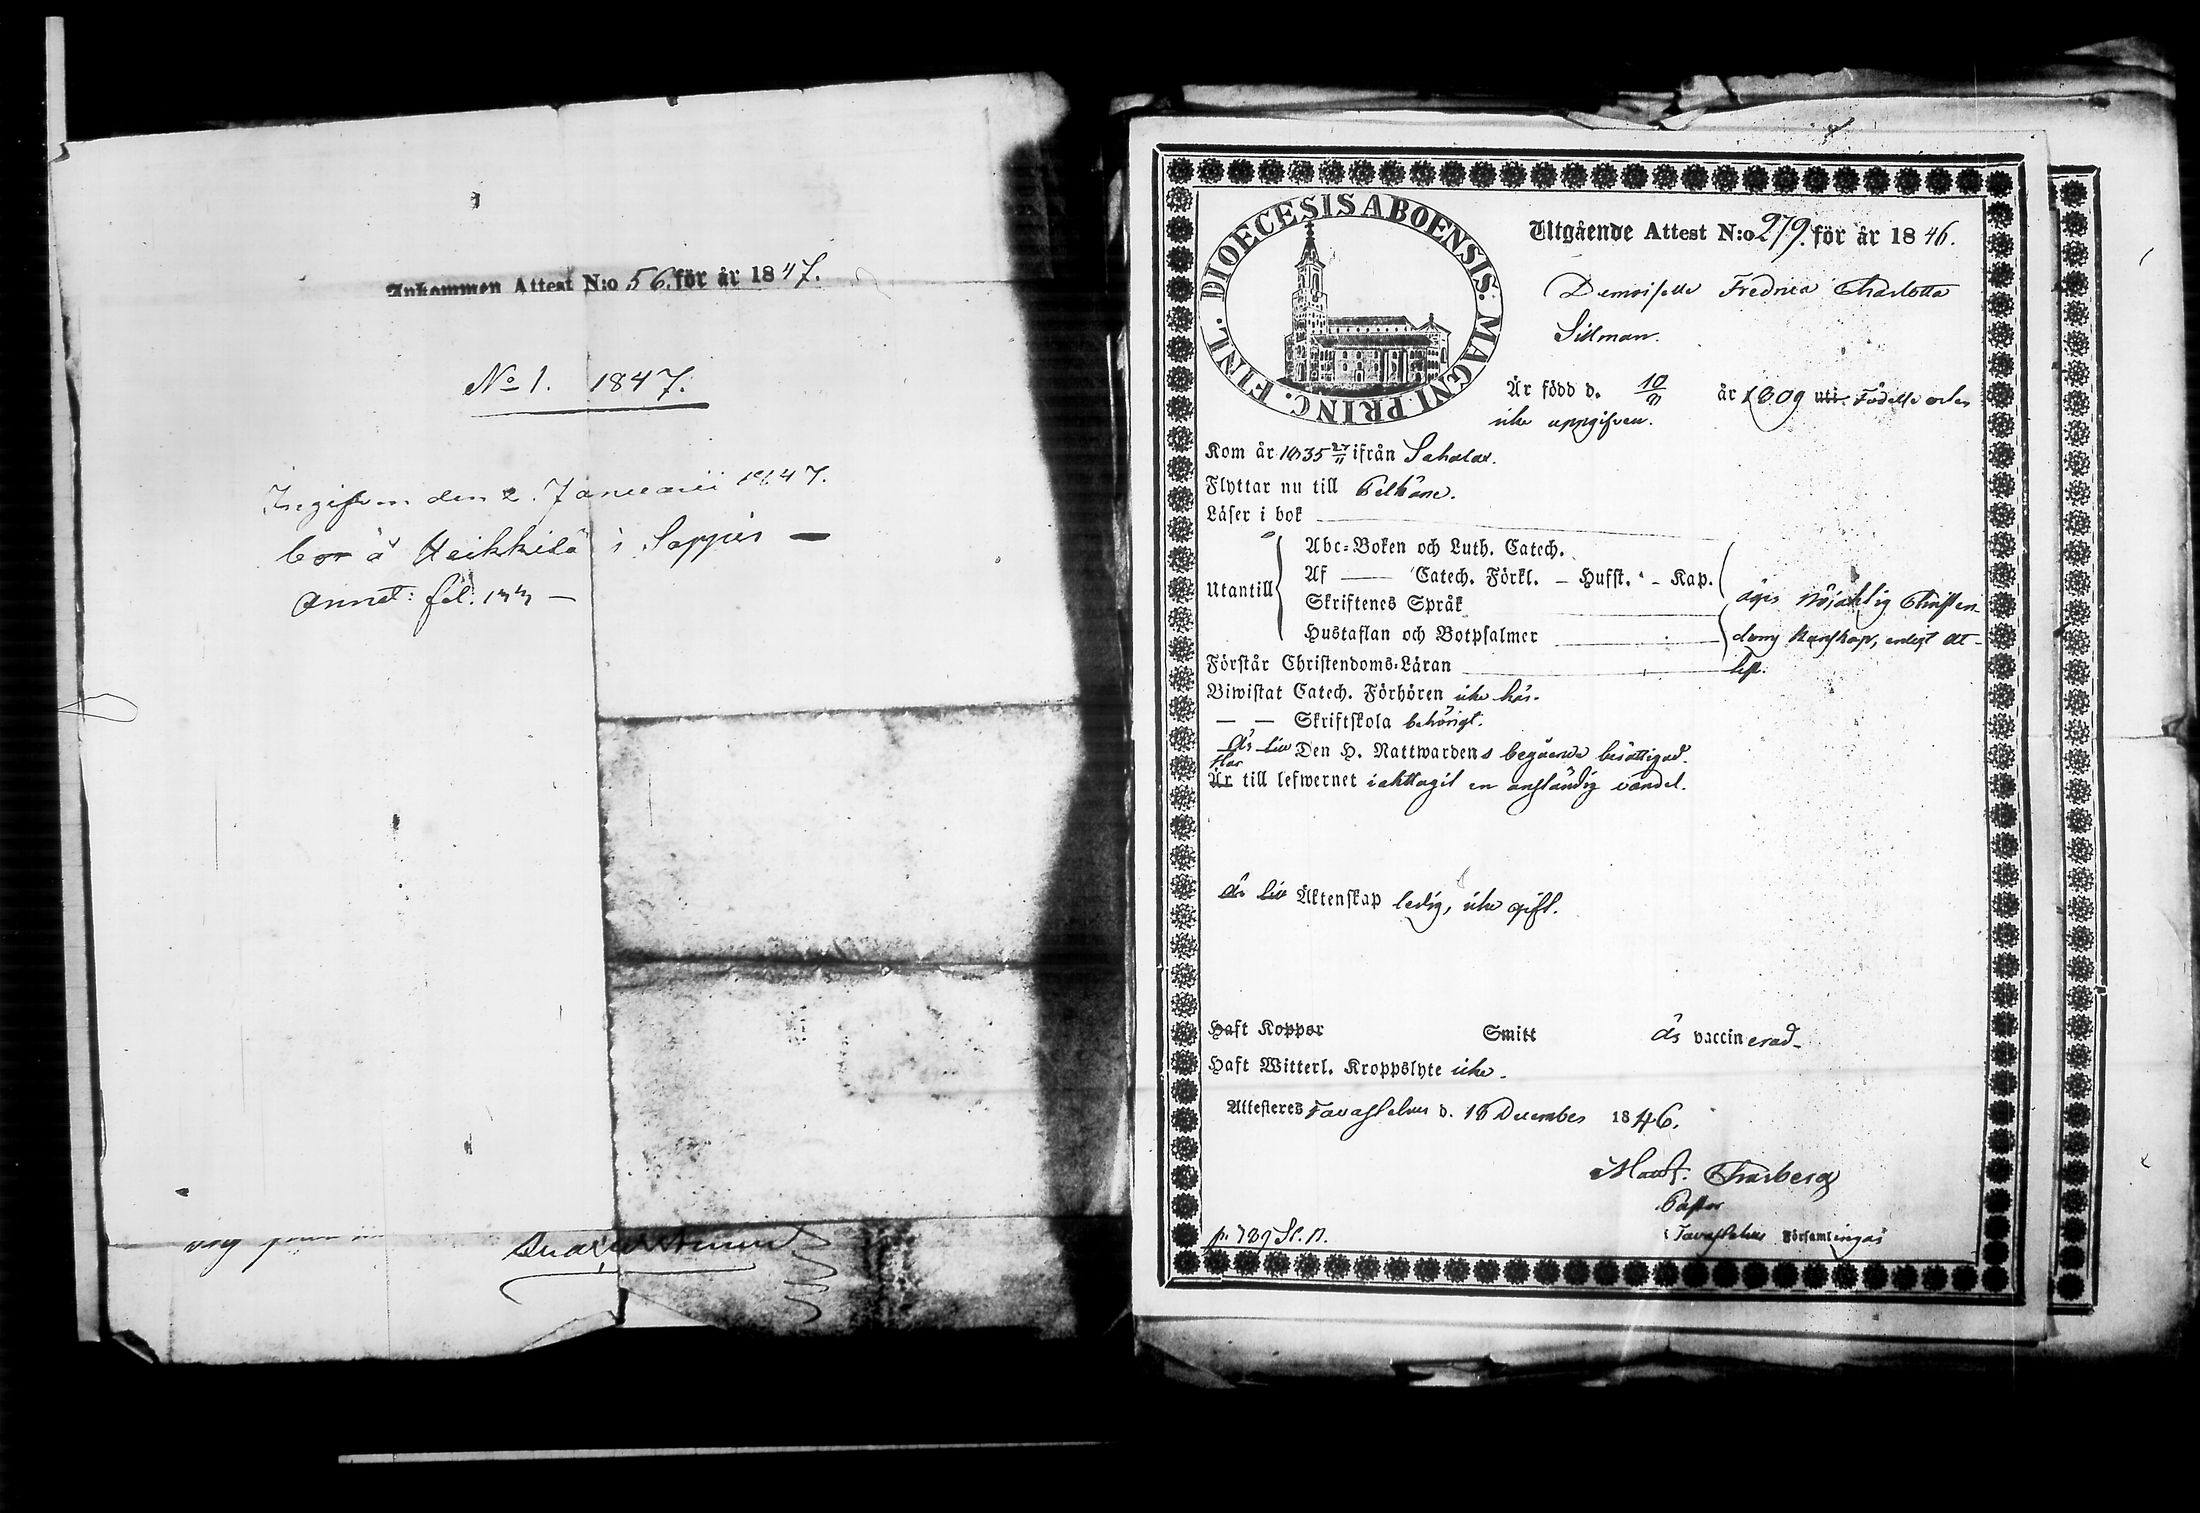 Inkommen Attest N:o 56. för år 1847.
No 1. 1847.
Ingifven den 2. Januarii 1847.
bor å Heikkilä i Sappis —
annot: fol. 133 —
DIOECESIS ABOENSIS. MAGNI PRINC. FINL.
Utgående Attest N:o 279. för år 1846.
Demoiselle Fredrica Charlotta
Sillman.
Är född d. 10 år 1809 uti Födelse orten
icke uppgifven.
Kom år 1835 27/11 ifrån Sahalax.
Flyttar nu till Pelkäne.
Läser i bok
Abc-Boken och Luth. Catech.
Utantill Af — Catech. Förkl. — Husst. — Kap. äger nöjaktig Christen-
Skriftenes Språk
Hustaflan och Botpsalmer doms kunskap, enligt at-
Förstår Christendoms-Läran test.
Biwistat Catech. Förhören icke här.
— — Skriftskola behörigt.
är till Den H. Nattwardens begående berättigad.
Har
Är till lefwernet iakttagit en anständig vandel.
är till Äktenskap ledig, icke gift.
Haft Koppor Smitt är vaccinerad.
Haft Witterl. Kroppslyte icke.
Attesteres Tavastehus d. 18 December 1846.
Pastor
p. 789 St. N. i Tavastehus Församlingar